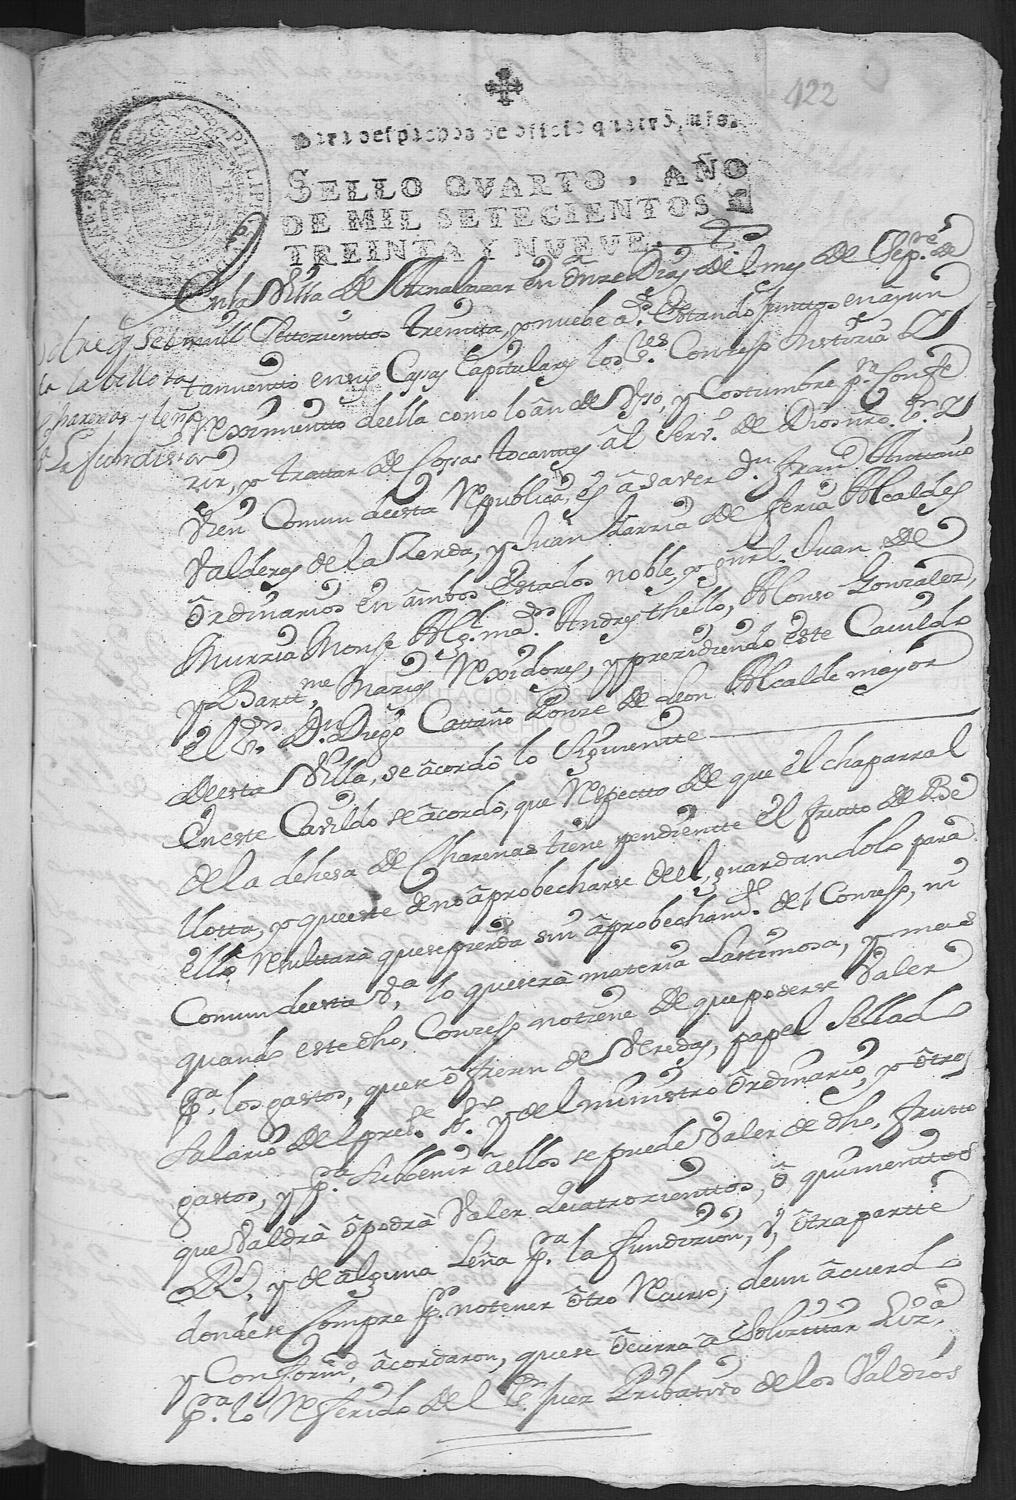 122
Para despachos de oficio quatro mrs.
SELLO QVARTO, AÑO
DE MIL SETECIENTOS Y
TREINTA Y NUEVE.
PHILIP
En la Villa de Almaluzar en onze Dias del mes de Sepre. de
mill Settezienttos Treintta, y nuebe as. Estando Junttos en ayun
tamientto en sus Casas Capitulares los Sres. Conzejo Justizia Y
Reximientto della como lo an de Uso, y Costumbre pa. Confe
rir, y trattar de Cossas tocanttes al Serv. de Dios nro. Sr. Y
Vien Comun desta Republica, es a saver Dn. Franco. Anttonio
Valderas de la Zerda, y Juan Garzia de Feria Alcaldes
Ordinarios en ambos Estados noble, y gnrl. Juan de
Murzia Monje Algl. mar. Andres thello, Alonso Gonzalez,
y Bartt,me Marjos Rexidores, y preziediendo este Cavildo
el Sr. Dn. Diego Cattaño Ponze de Leon Alcalde mayor
desta Villa, se acordo lo Siguientte
En este Cavildo se acordo, que Respectto de que el chaparral
de la dehesa de Charenas tiene pendientte el frutto de Be
llotta, y que este de no aprobecharse del, guardandolo para
ello Resulttara que se pierda sin aprobechamto. del Conzejo, ni
Comun desta Va. lo que sera materia Lastimosa, y mas
quando este dho, Conzejo no tiene de que poderse Valer
pa. los gastos, que se ofrezen de Veredas, papel Sellado
Salario del preste. Sno. y del ministro Ordinario, y otros
gastos, y pa. Subbenir a ellos se puede Valer de dho, frutto
que Valdra o podra Valer Quatrozienttos, o quinienttos
Rs. y de alguna Leña pa. la fundizion, y, otra partte
donde se Compre pr. no tener otro Recurso, de un acuerdo
y Conformd. acordaron, que se ocurra a Solizittar Liza.
pa. lo Referido del Sr. Juez Pribativo de los Valdios
Sobre q se
la bellota
chareras y leña
pa. La fundizion